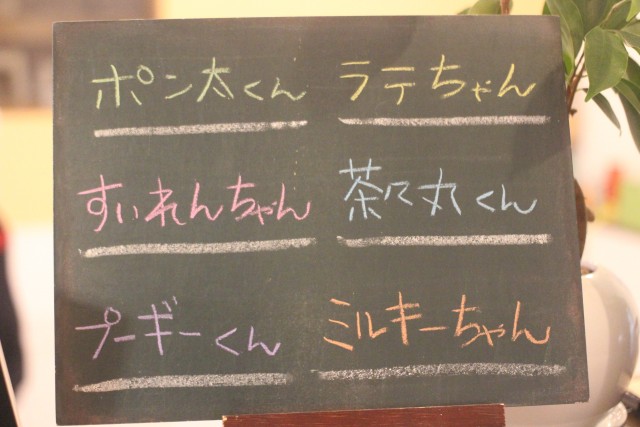 ポン太くん ラテちゃん
すいれんちゃん 茶々丸くん
プーギーくん ミルキーちゃん